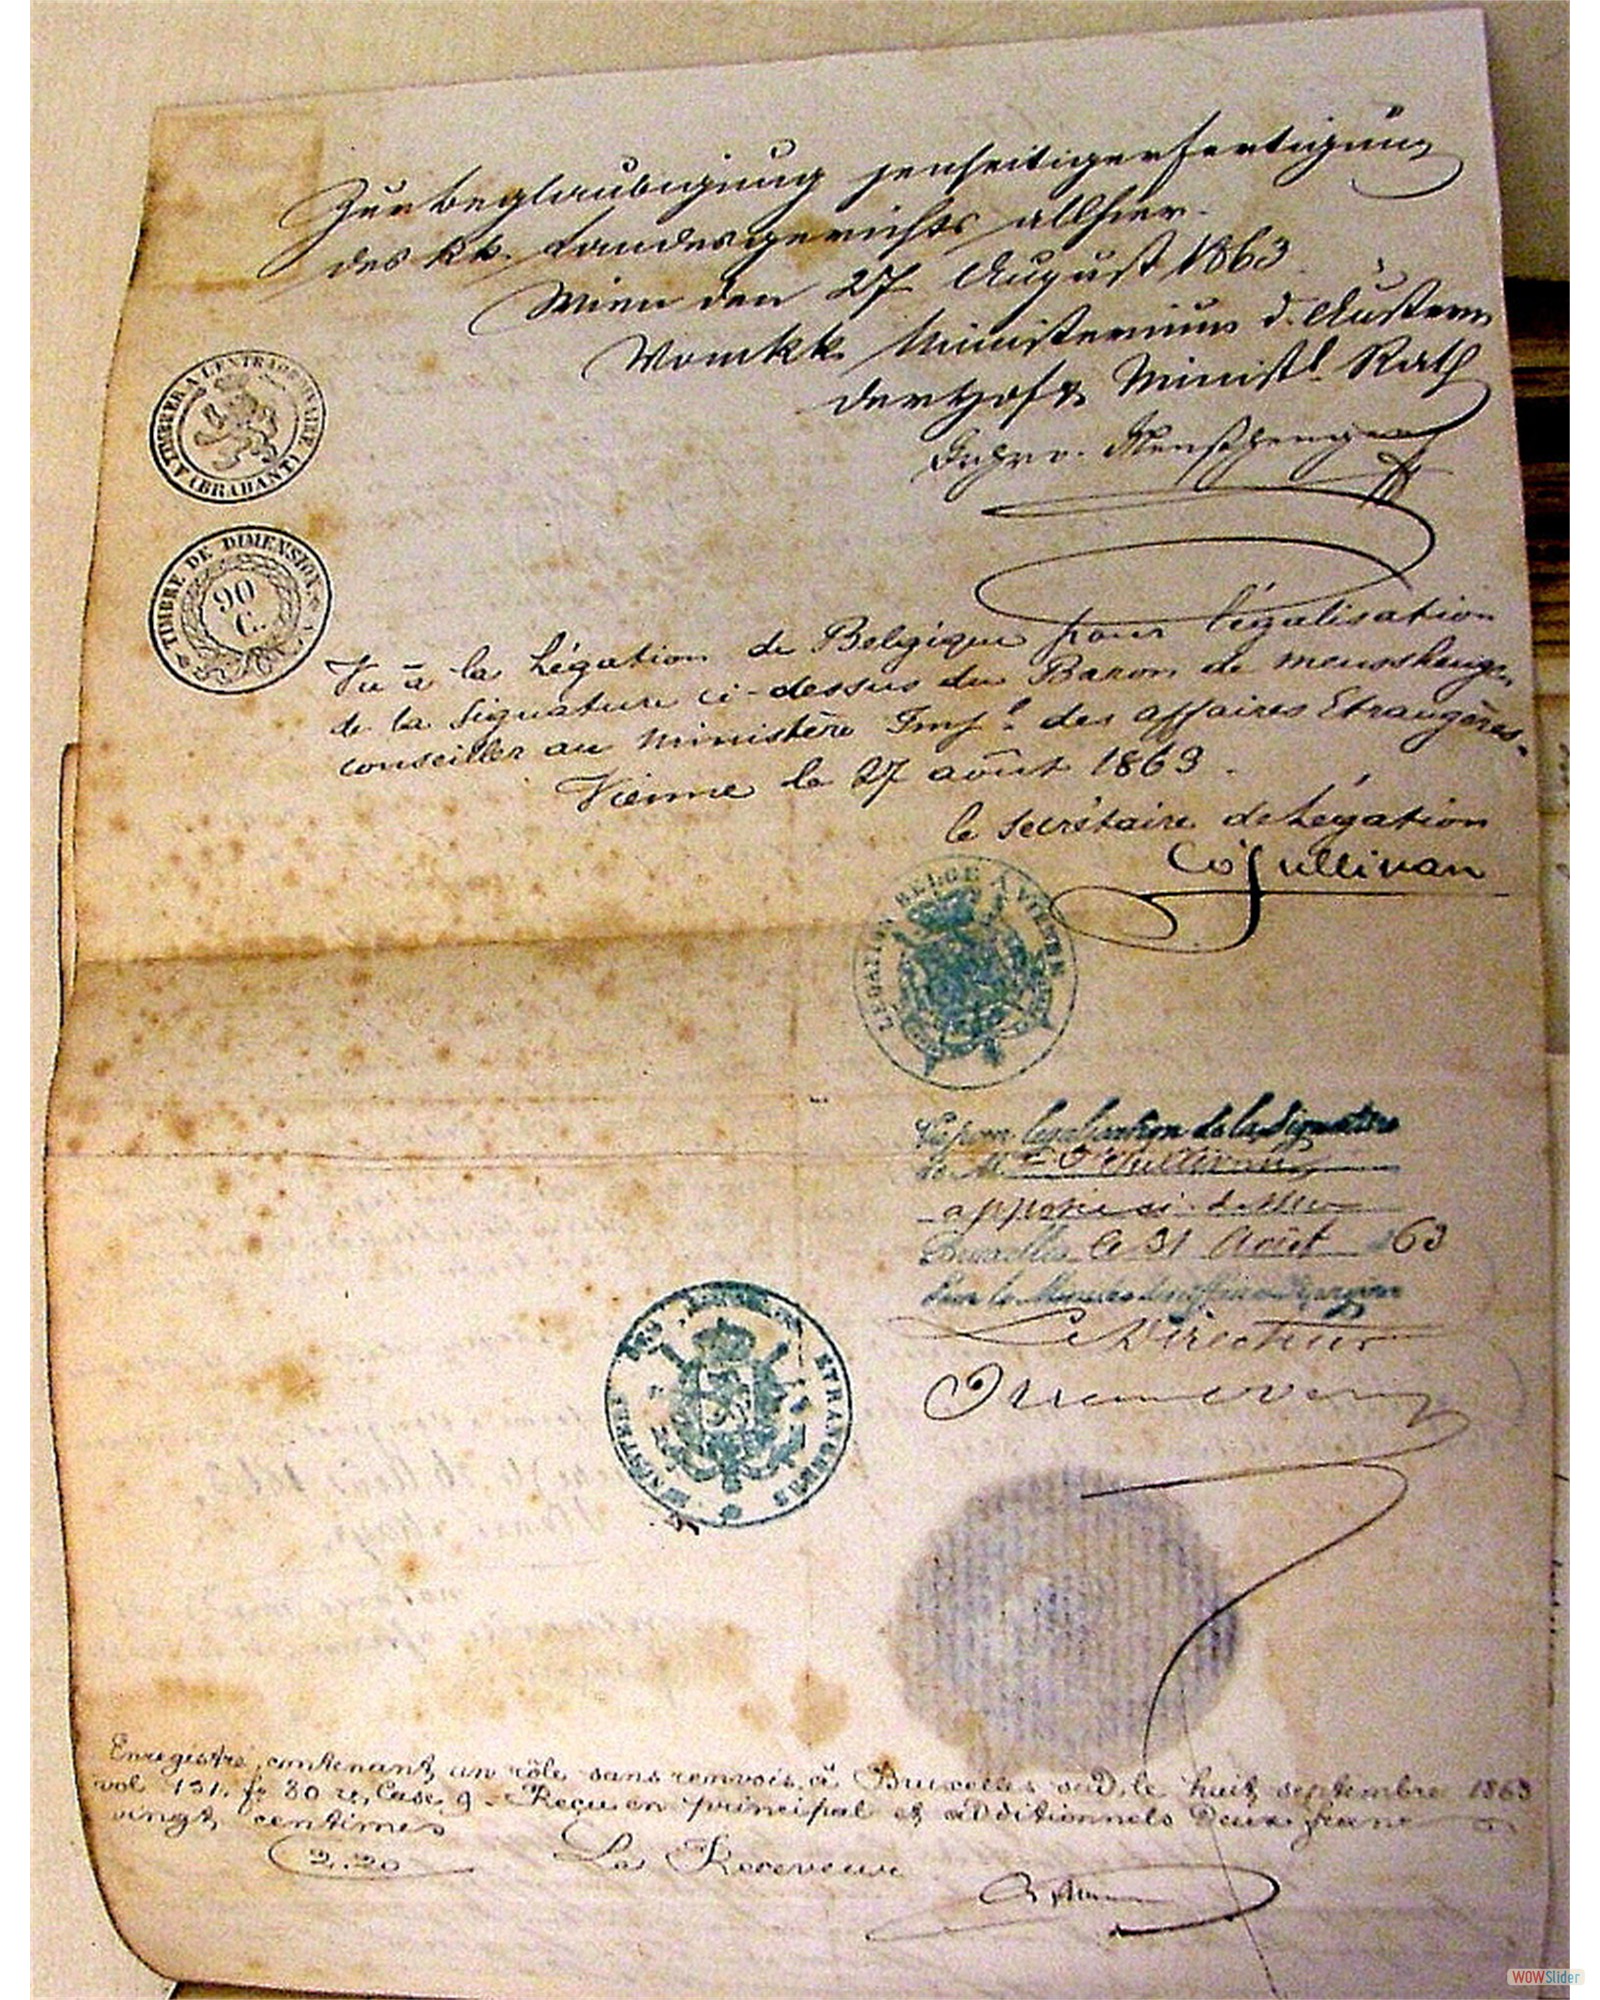 Zur Beglaubigung jenseitiger Fertigung
des kk. Landesgerichts allhier.
Wien den 27 August 1863
Vom kk Ministerium d. Äußern
der Hof & Minist. Rath
TIMBRE A L'EXTRAORDINAIRE
(BRABANT)
TIMBRE DE DIMENSION
90
C.
Vu à la Légation de Belgique pour légalisation
de la signature ci-dessus du Baron de
conseiller au ministère Impl. des affaires Etrangères.
Vienne le 27 août 1863.
le secrétaire de Légation
O'Sullivan
LEGATION BELGE A VIENNE
Vu pour legalisation de la Signature
de Mr. O'Sullivan
apposée ci-dessus
Bruxelles le 31 Août 1863
Pour le Ministre des affaires Etrangères
Le Directeur
MINISTERE DES AFFAIRES ETRANGERES
Enregistré contenant un rôle sans renvois, à Bruxelles sud, le huit septembre 1863
vol 131, fo 80 ro, Case 9. Reçu en principal et additionnels Deux francs
vingt centimes
2.20
Le Receveur
WOWSlider